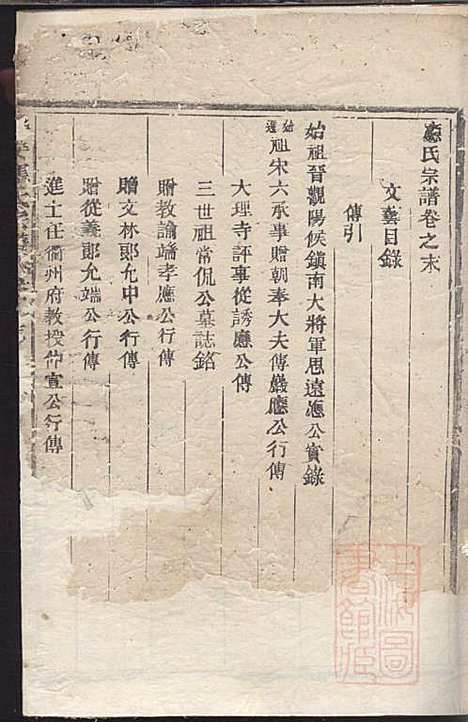 應氏宗譜卷之末
文藝目錄
傳引
始祖晉觀陽侯鎮南大將軍思遠應公實錄
始遷祖宋六承事贈朝奉大夫傳巖應公行傳
大理寺評事從誘應公傳
三世祖常侃公墓誌銘
贈教諭端孝應公行傳
贈文林郎允中公行傳
贈從義郎允端公行傳
進士任衢州府教授仲宣公行傳